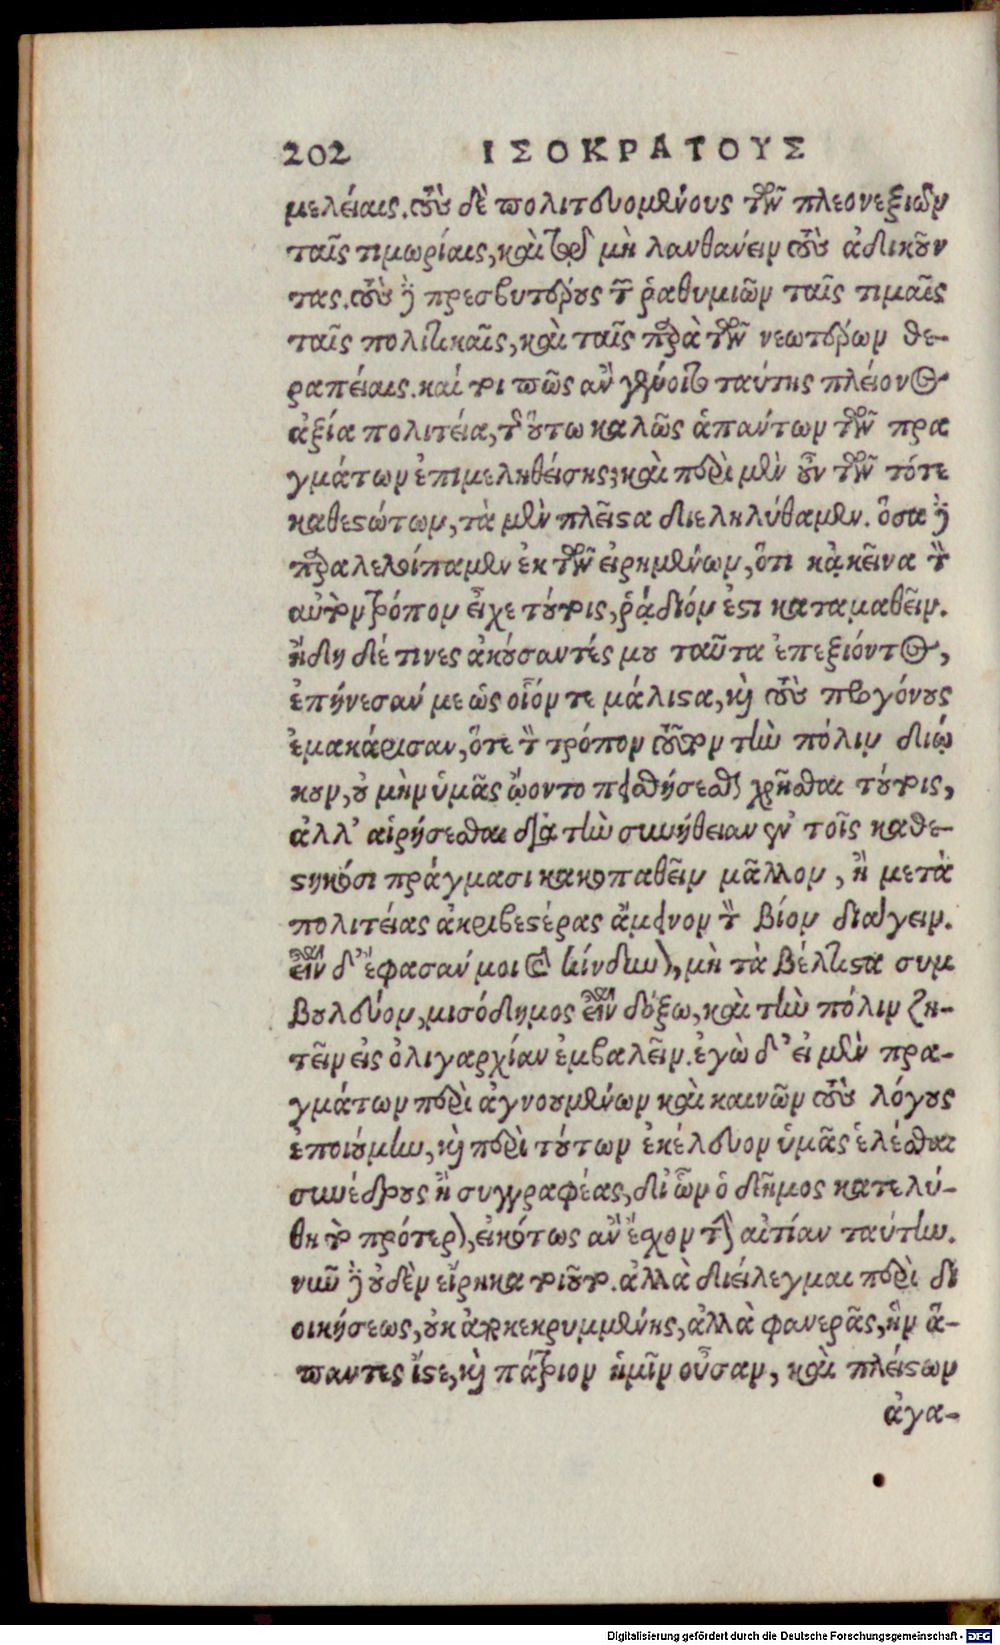 202 ΙΣΟΚΡΑΤΟΥΣ
μελείαις. τοὺς δὲ πολιτευομένους τῶν πλεονεξιῶν
ταῖς τιμωρίαις, καὶ τῷ μὴ λανθάνειν τοὺς ἀδικοῦν
τας. τοὺς δὲ πρεσβυτέρους τῶν ῥαθυμιῶν ταῖς τιμαῖς
ταῖς πολιτικαῖς, καὶ ταῖς παρὰ τῶν νεωτέρων θε-
ραπείαις. καί τοι πῶς ἂν γένοιτο ταύτης πλείονος
ἀξία πολιτεία, τῆς οὕτω καλῶς ἁπάντων τῶν πρα
γμάτων ἐπιμεληθείσης; καὶ περὶ μὲν οὖν τῶν τότε
καθεστώτων, τὰ μὲν πλεῖστα διεληλύθαμεν. ὅσα δὲ
παραλελοίπαμεν ἐκ τῶν εἰρημένων, ὅτι κἀκεῖνα τὸν
αὐτὸν τρόπον εἶχε τούτοις, ῥᾴδιόν ἐστι καταμαθεῖν.
ἤδη δέ τινες ἀκούσαντές μου ταῦτα ἐπεξιόντος,
ἐπῄνεσάν με ὡς οἷόν τε μάλιστα, καὶ τοὺς προγόνους
ἐμακάρισαν, ὅτε τὸν τρόπον τοῦτον τὴν πόλιν διῴ
κουν, οὐ μὴν ὑμᾶς ᾤοντο πεισθήσεσθαι χρῆσθαι τούτοις,
ἀλλ’ αἱρήσεσθαι διὰ τὴν συνήθειαν ἐν τοῖς καθε-
στηκόσι πράγμασι κακοπαθεῖν μᾶλλον, ἢ μετὰ
πολιτείας ἀκριβεστέρας ἄμεινον τὸν βίον διάγειν.
εἶναι δ’ ἔφασάν μοι καὶ κίνδυνον, μὴ τὰ βέλτιστα συμ
βουλεύων, μισόδημος εἶναι δόξω, καὶ τὴν πόλιν ζη-
τεῖν εἰς ὀλιγαρχίαν ἐμβαλεῖν. ἐγὼ δ’ εἰ μὲν πρα-
γμάτων περὶ ἀγνοουμένων καὶ καινῶν τοὺς λόγους
ἐποιούμην, καὶ περὶ τούτων ἐκέλευον ὑμᾶς ἑλέσθαι
συνέδρους ἢ συγγραφέας, δι ὧν ὁ δῆμος κατελύ-
θη τὸ πρότερον, εἰκότως ἂν ἔχον τὴν αἰτίαν ταύτην.
νῦν δὲ οὐδὲν εἴρηκα τοιοῦτο. ἀλλὰ διείλεγμαι περὶ δι
οικήσεως, οὐκ ἀποκεκρυμμένης, ἀλλὰ φανερᾶς, ἣν ἅ-
παντες ἴστε, καὶ πάτριον ἡμῖν οὖσαν, καὶ πλείστων
ἀγα-
Digitalisierung gefördert durch die Deutsche Forschungsgemeinschaft - DFG